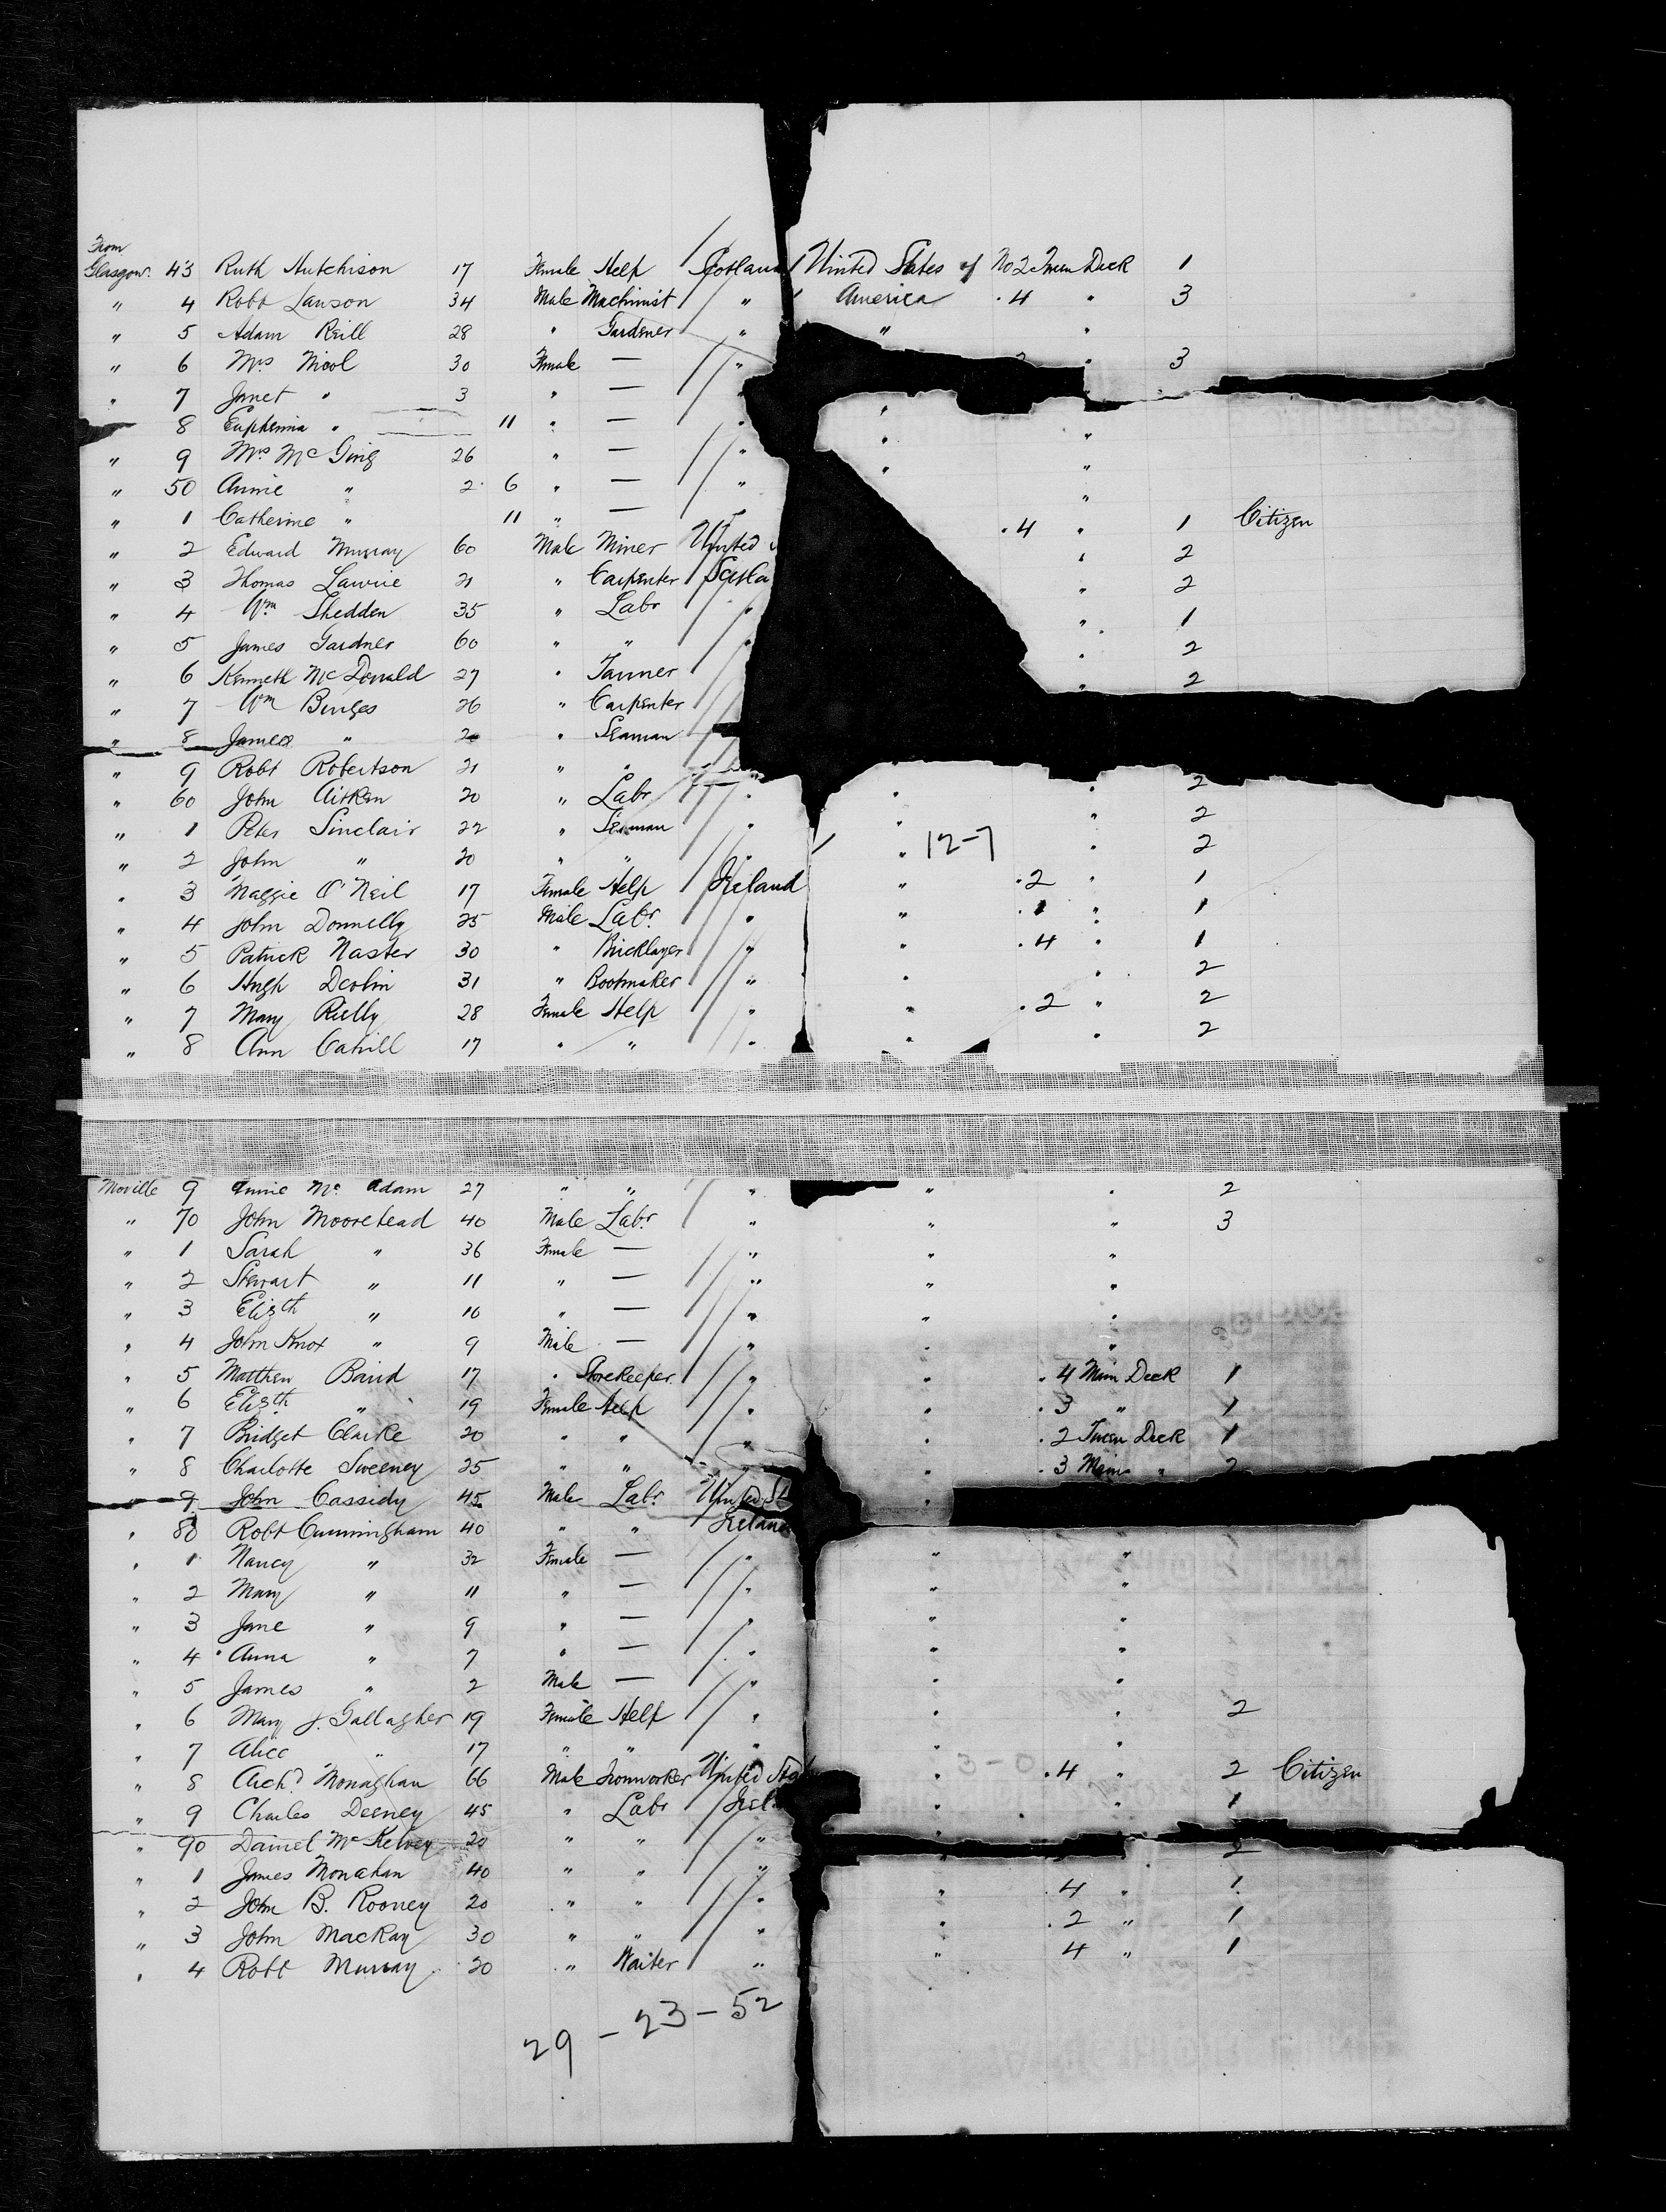 From
Glasgow. 43 Ruth Hutchison 17 Female Help Scotland United States of No 2 Tween Deck 1
" 4 Robt Lawson 34 Male Machinist " America " 4 " 3
" 5 Adam Reill 28 " Gardener " " "
" 6 Mrs Nicol 30 Female — " " 3
" 7 Janet " 3 " —
8 Euphemia " 11 " — " "
" 9 Mrs McGing 26 " — " " "
" 50 Annie " 2 6 " — " " "
" 1 Catherine " 11 " — " "
" 2 Edward Murray 60 Male Miner United " 4 " 1 Citizen
" 3 Thomas Lawrie 21 " Carpenter Scotla " 2
" 4 Wm Shedden 35 " Labr " " 2
" 5 James Gardner 60 " " " " 1
" 6 Kenneth McDonald 27 " Tanner " 2
" 7 Wm Binges 26 " Carpenter " 2
" 8 James " 2 " Seaman
" 9 Robt Robertson 21 " " "
" 60 John Aitken 20 " Labr " " " 2
" 1 Peter Sinclair 22 " Seaman " " " 2
" 2 John " 20 " " " " 12-7 " 2
" 3 Maggie O'Neil 17 Female Help Ireland " " 2 " 1
" 4 John Donnelly 25 Male Labr " " " 1 " 1
" 5 Patrick Naster 30 " Bricklayer " " " 4 " 1
" 6 Hugh Devlin 31 " Bootmaker " " " 2
" 7 Mary Rielly 28 Female Help " " " 2 " 2
" 8 Ann Cahill 17 " " " " " 2
Moville 9 Annie Mc Adam 27 " " " " " 2
" 70 John Moorehead 40 Male Labr " " " 3
" 1 Sarah " 36 Female — " " "
" 2 Stewart " 11 " — " " "
" 3 Elizth " 10 " — " " "
" 4 John Knox " 9 Male — " " "
" 5 Matthew Baird 17 " Storekeeper " " " 4 Main Deck 1
" 6 Elizth " 19 Female Help " " " 3 " 1
" 7 Bridget Clarke 20 " " " " " 2 Tween Deck 1
" 8 Charlotte Sweeney 25 " " " " " 3 Main " 2
" 9 John Cassidy 45 Male Labr United St "
" 80 Robt Cunningham 40 " " Ireland
" 1 Nancy " 32 Female — " " "
" 2 Mary " 11 " — " " "
" 3 Jane " 9 " — " " "
" 4 Anna " 7 " — " " "
" 5 James " 2 Male — " " "
" 6 Mary J. Gallagher 19 Female Help " " " 2
" 7 Alice " 17 " " " " "
" 8 Archd Monaghan 66 Male Ironworker United Sta " 3-0 " 4 " 2 Citizen
" 9 Charles Deeney 45 " Labr Irel " " 1
" 90 Daniel McKelvey 20 " " " " 2
" 1 James Monahan 40 " " "
" 2 John B. Rooney 20 " " " " " 4 " 1
" 3 John MacKay 30 " " " " " 2 " 1
" 4 Robt Murray 20 " Waiter " " 4 " 1
29-23-52